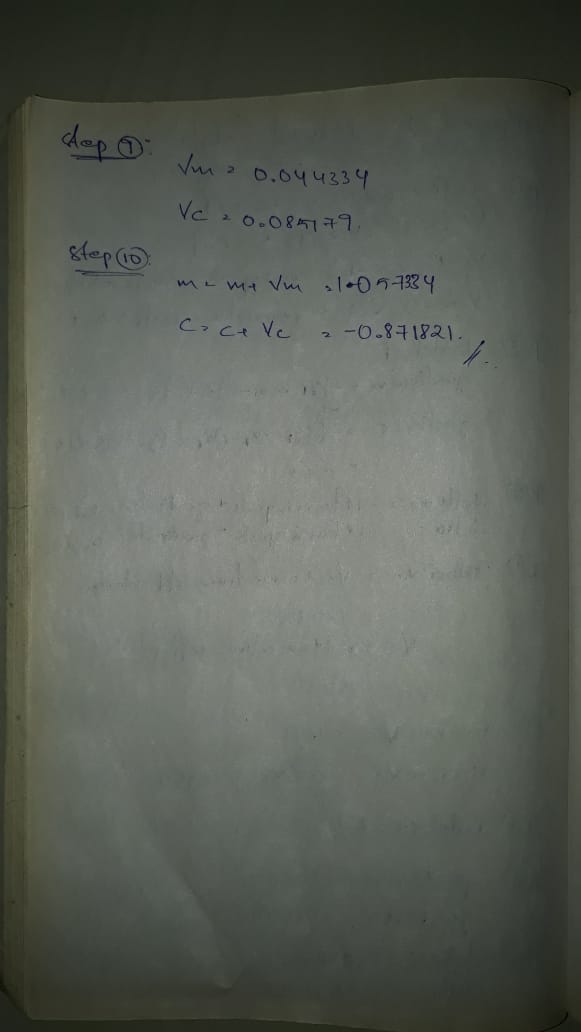 Step ⑨:
Vm = 0.044334
Vc = 0.085179.
Step ⑩:
m = m + Vm = 1.057334
c = c + Vc = -0.871821.